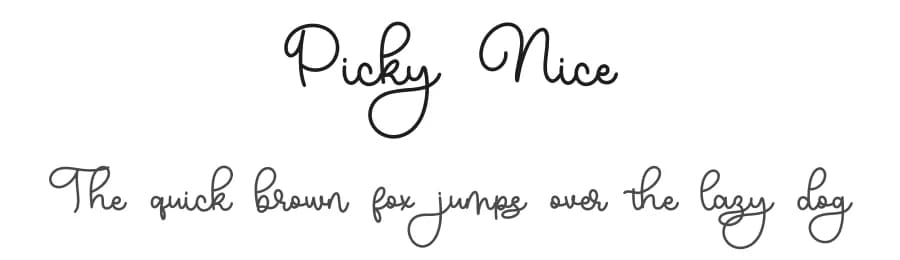 Picky Nice
The quick brown fox jumps over the lazy dog